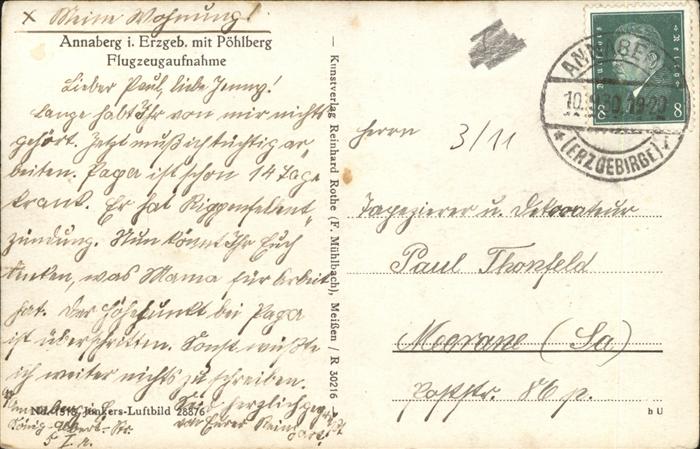 x Meine Wohnung!
Annaberg i. Erzgeb. mit Pöhlberg
Flugzeugaufnahme
Lieber Paul, liebe Jenny!
Lange habt Ihr von mir nichts
gehört. Jetzt muß ich tüchtig ar¬
beiten. Papa ist schon 14 Tage
krank. Er hat Rippenfellent¬
zündung. Nun könnt Ihr Euch
denken, was Mama für Arbeit
hat. Der Höhepunkt bei Papa
ist überschritten. Sonst wüßte
ich weiter nichts zu schreiben.
Seid herzlich gegrüßt
von Eurem
Junkers-Luftbild 28876
König-Albert-Str.
5 I. r.
— Kunstverlag Reinhard Rothe (F. Mühlbach), Meißen / R 30216
ANNABERG
19-20
* (ERZGEBIRGE)
Deutsches Reich
8 8
Herrn 3/11
Tapezierer u. Dekorateur
Paul Thonfeld
Meerane (Sa)
Poststr. 86 p.
h U